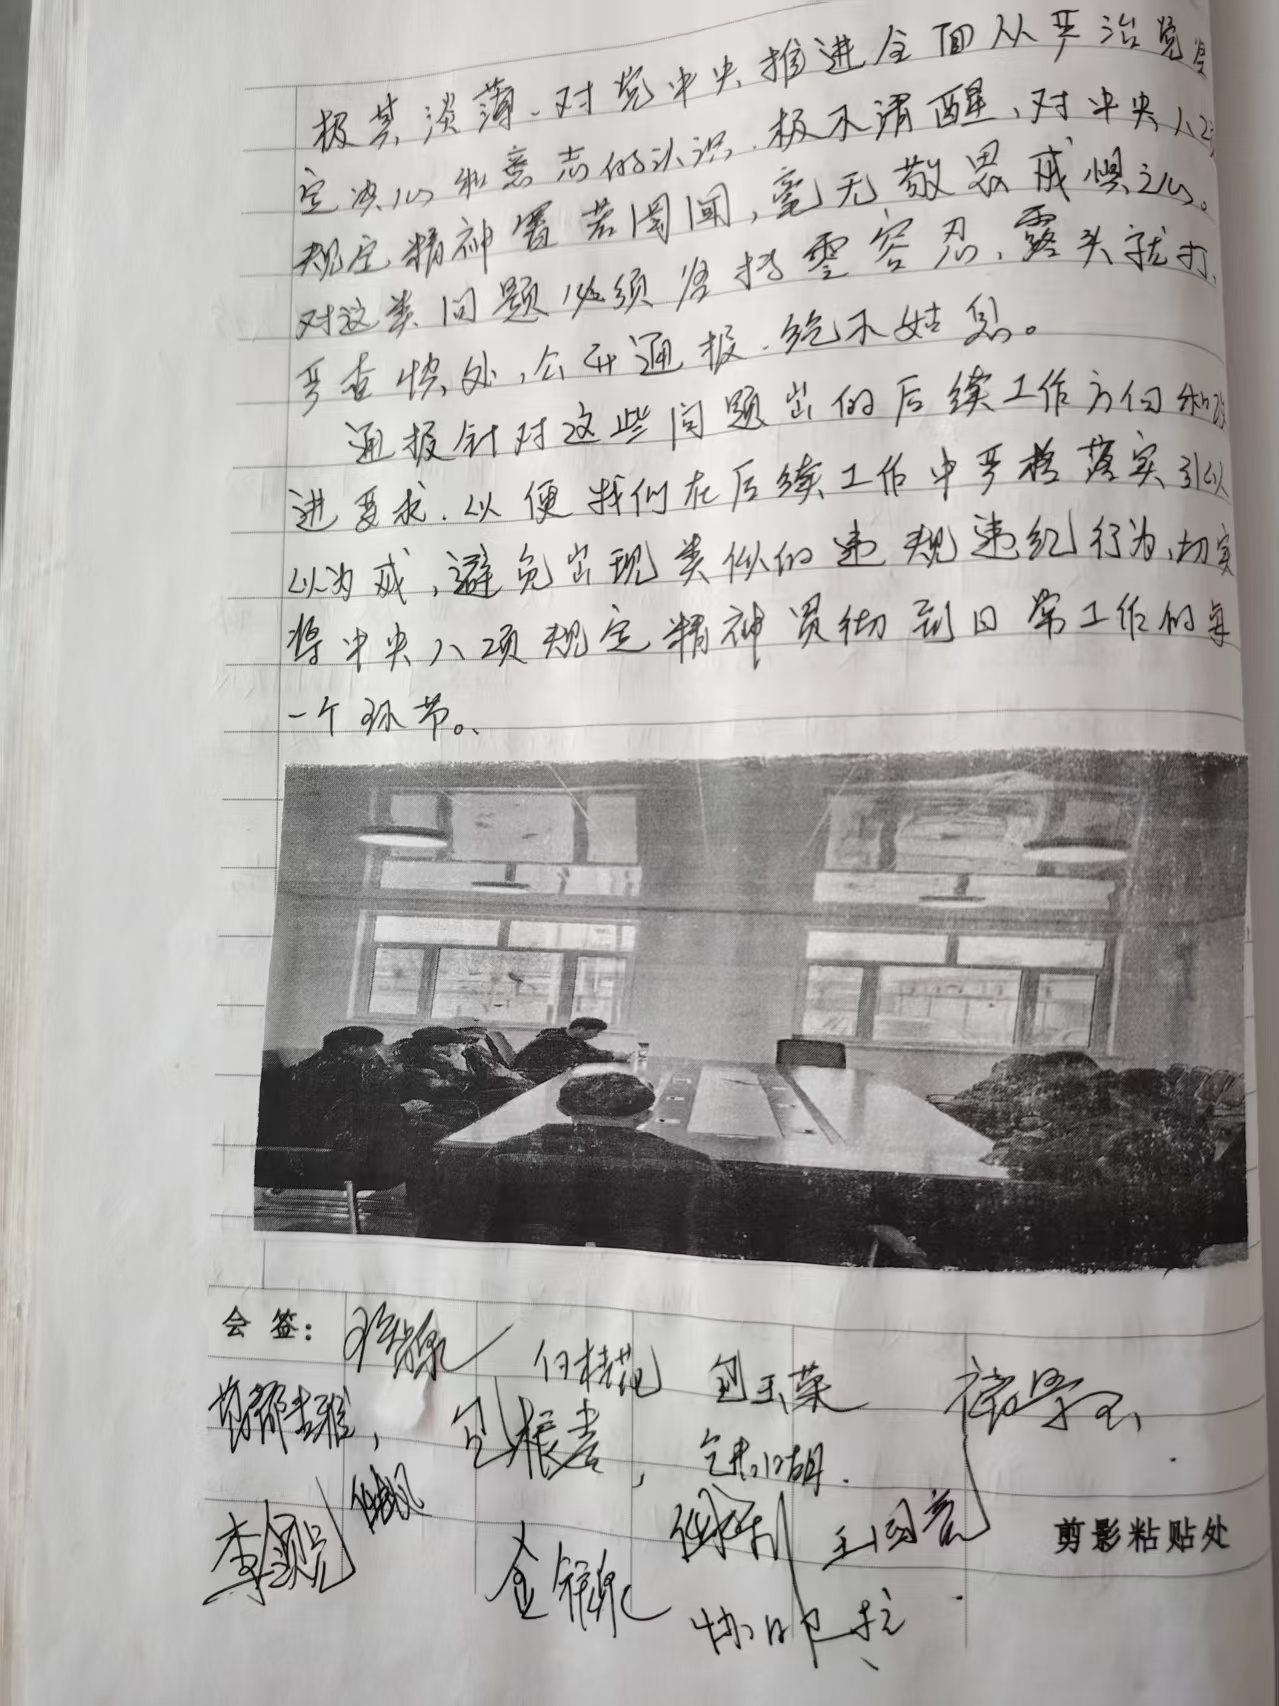 极其淡薄、对党中央推进全面从严治党坚
定决心和意志的认识极不清醒、对中央八项
规定精神置若罔闻,毫无敬畏戒惧之心。
对这类问题必须坚持零容忍、露头就打、
严查快处,公开通报、绝不姑息。
通报针对这些问题出的后续工作方向和改
进要求、以便我们在后续工作中严格落实引以
以为戒,避免出现类似的违规违纪行为、切实
将中央八项规定精神贯彻到日常工作的每
一个环节。
会签:
白桂花 包玉荣
包根杰,
李银晃
金锁泉 王国亮
剪影粘贴处